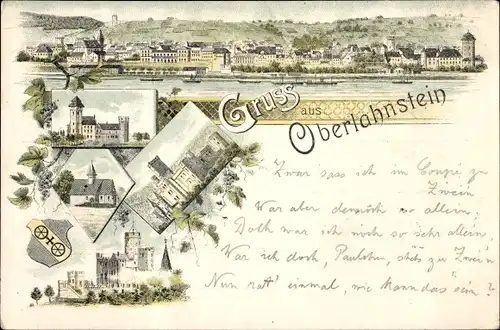 Gruss
aus
Oberlahnstein
Zwar sass ich im Coupé zu
Zwein
War aber dennoch so allein;
Doch war ich nich so sehr allein
War ich doch, Paulchen, stets zu Zwei'n
Nun rat' einmal, wie kann das sein?